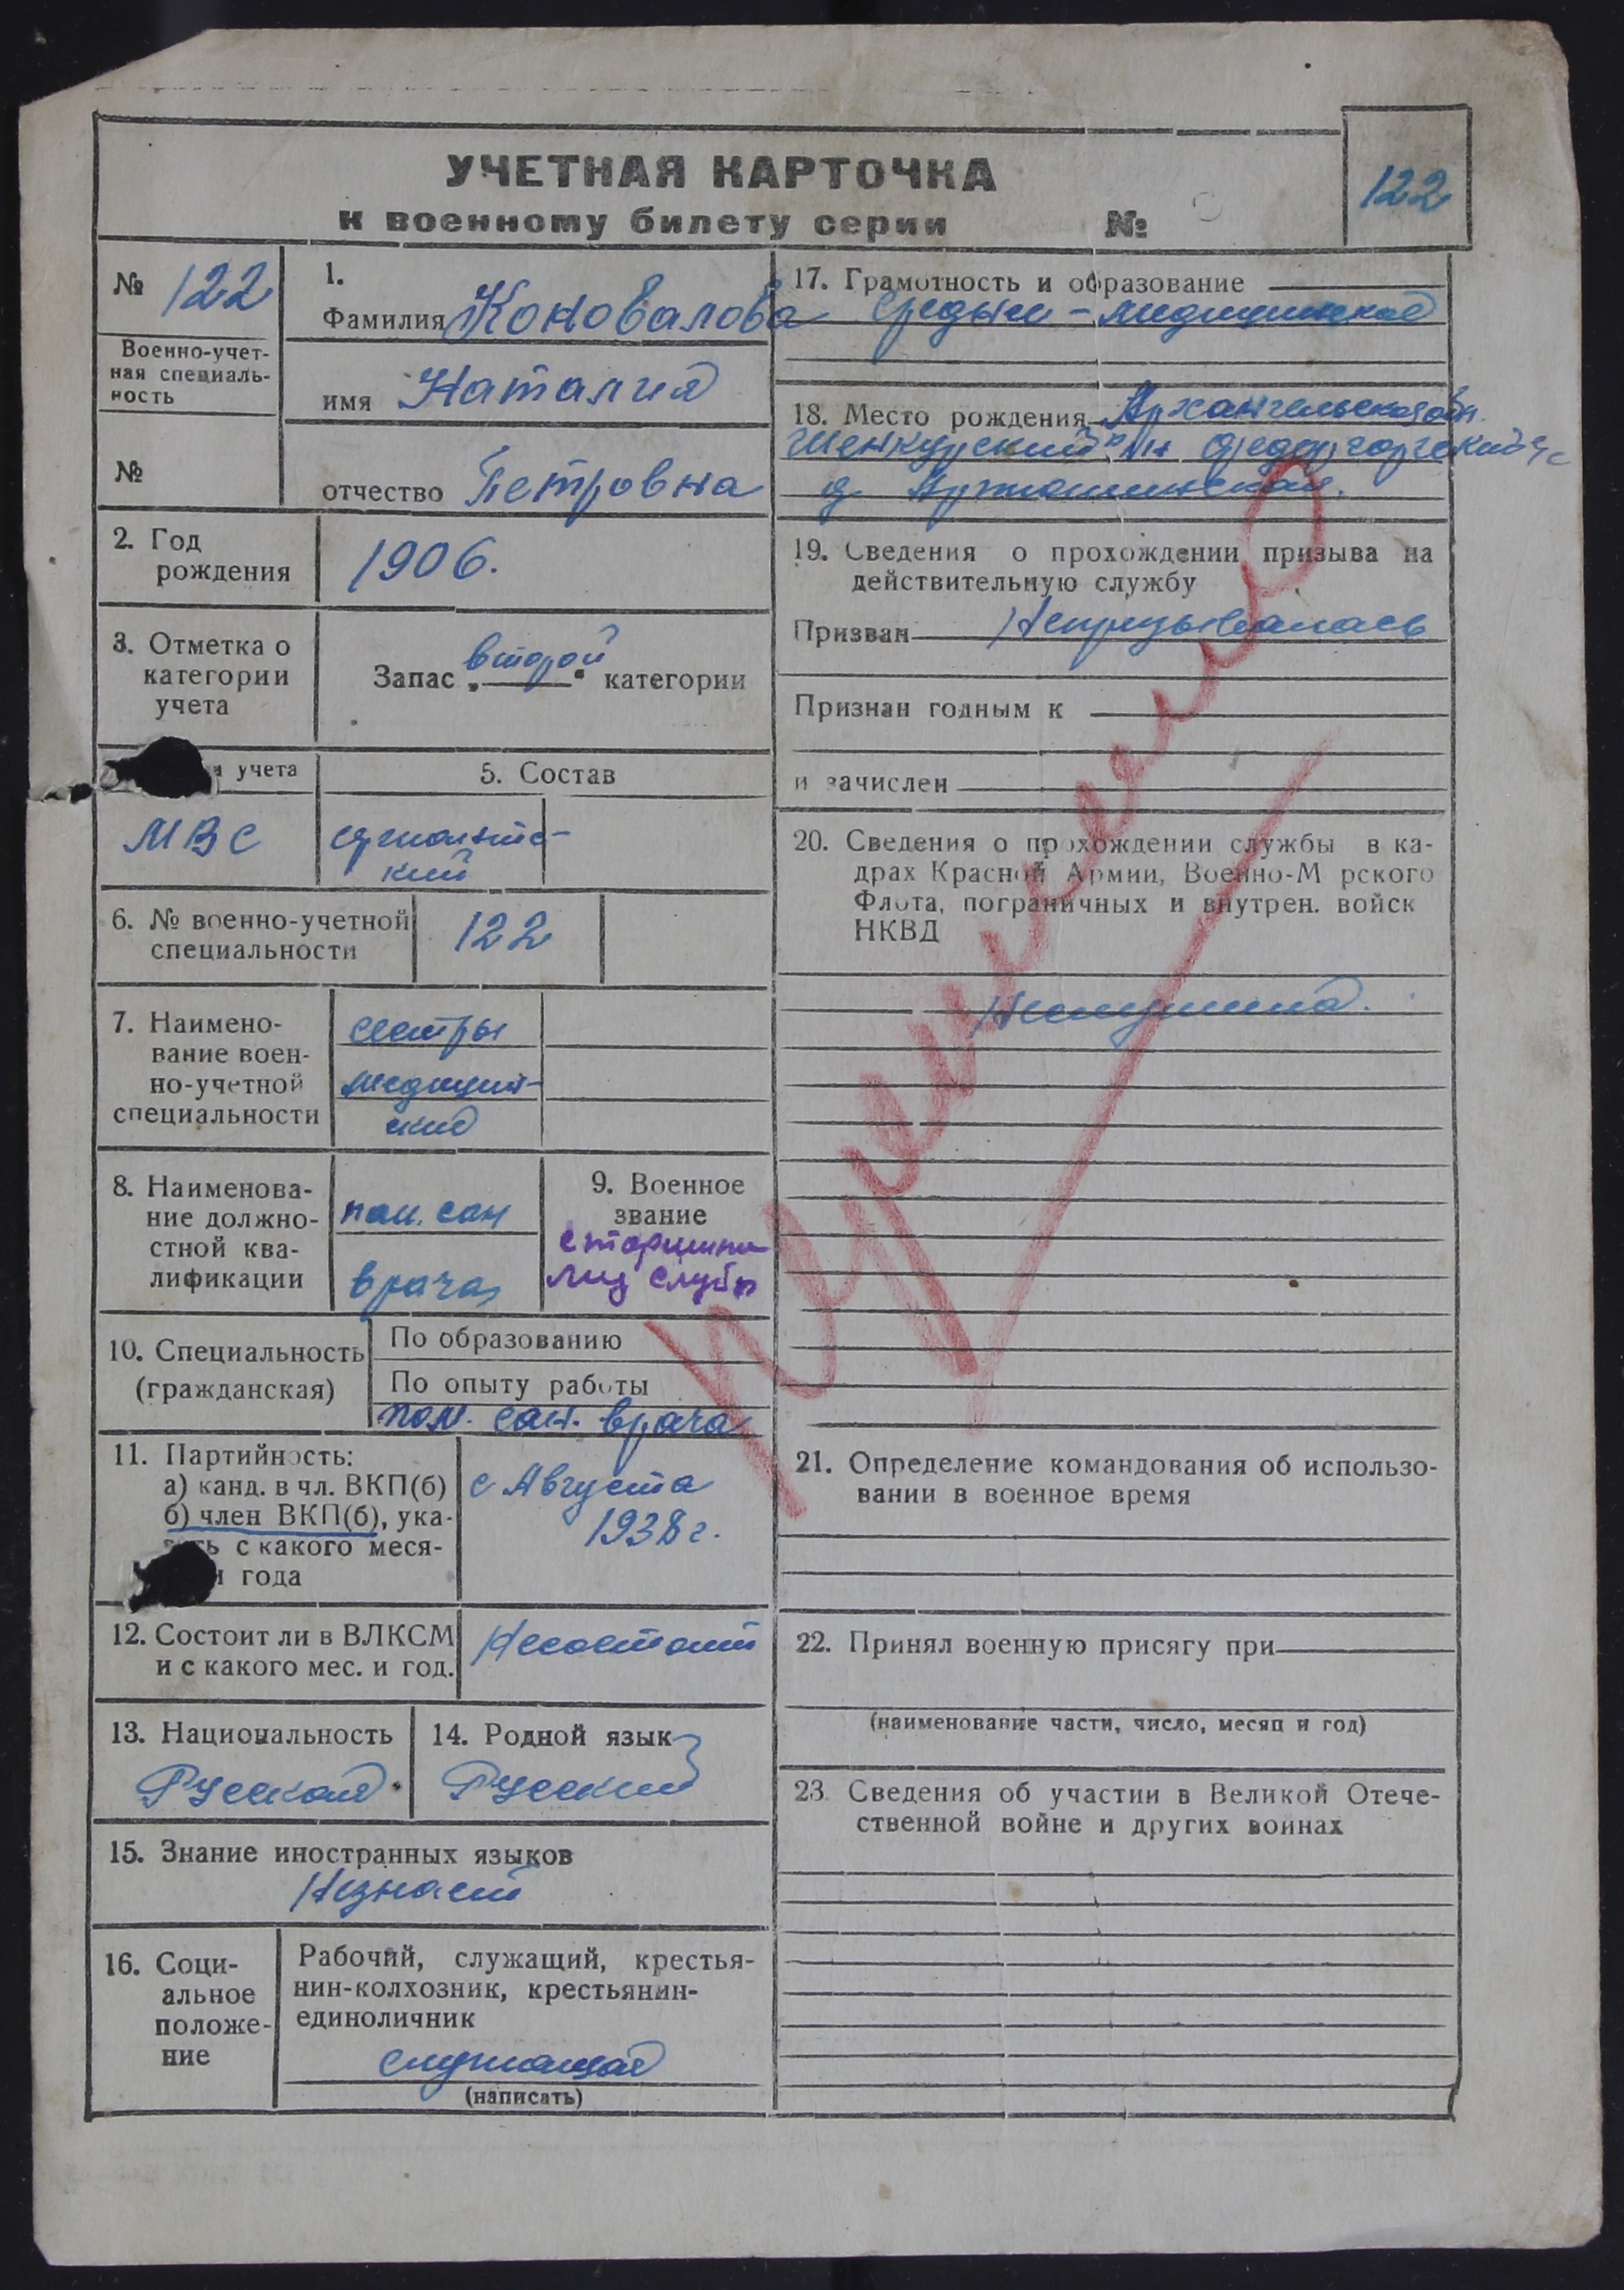 УЧЕТНАЯ КАРТОЧКА
122
к военному билету серии №
№ 122
Военно-учет-
ная специаль-
ность
№
1.
Фамилия Коновалова
имя Наталия
отчество Петровна
2. Год
рождения
1906.
3. Отметка о
категории
учета
Запас „второй" категории
учета
МВС
5. Состав
кий
6. № военно-учетной
специальности
122
7. Наимено-
вание воен-
но-учетной
специальности
сестры
медицин-
ские
8. Наименова-
ние должно-
стной ква-
лификации
пом. сан
врача
9. Военное
звание
старшина
мед службы
10. Специальность
(гражданская)
По образованию
По опыту работы
пом. сан. врача
11. Партийность:
а) канд. в чл. ВКП(б)
б) член ВКП(б), ука-
зать с какого меся-
и года
с Августа
1938 г.
12. Состоит ли в ВЛКСМ
и с какого мес. и год.
Несостоит
13. Национальность
Русская
14. Родной язык
Русский
15. Знание иностранных языков
Незнает
16. Соци-
альное
положе-
ние
Рабочий, служащий, крестья-
нин-колхозник, крестьянин-
единоличник
служащая
(написать)
17. Грамотность и образование
средне-медицинское
18. Место рождения Архангельская обл.
Шенкурский р-н Федорогорский с/с
д.
19. Сведения о прохождении призыва на
действительную службу
Призван Непризывалась
Признан годным к
и зачислен
20. Сведения о прохождении службы в ка-
драх Красной Армии, Военно-Морского
Флота, пограничных и внутрен. войск
НКВД
Неслужила.
21. Определение командования об использо-
вании в военное время
22. Принял военную присягу при
(наименование части, число, месяц и год)
23. Сведения об участии в Великой Отече-
ственной войне и других войнах